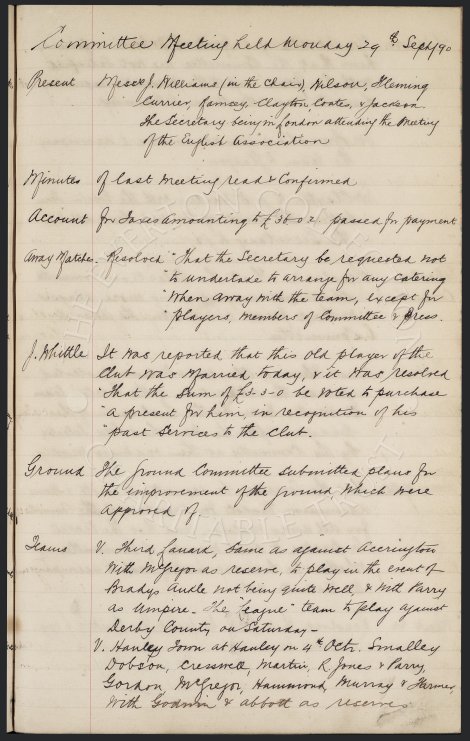 Committee Meeting held Monday 29th Sept/90
Present Messrs J. Williams (in the Chair), Wilson, Fleming
Currier, Ramsey, Clayton, Coates, & Jackson.
The Secretary being in London attending the Meeting
of the English Association
Minutes of last Meeting read & Confirmed
Account for Taxes amounting to £36.0.2. passed for payment
Away Matches. Resolved "That the Secretary be requested not
"to undertake to arrange for any Catering
"when away with the team, except for
"players, members of Committee & Press.
J. Whittle It was reported that this old player of the
Club was married today, & it was resolved
"That the Sum of £3-3-0 be voted to purchase
"a present for him, in recognition of his
"past services to the Club.
Ground The Ground Committee submitted plans for
the improvement of the ground which were
approved of.
Teams V. Third Lanard, same as against Accrington
with McGregor as reserve, to play in the event of
Bradys Ancle not being quite well, & with Parry
as Umpire. The "League" team to play against
Derby County on Saturday -
V. Hanley Town at Hanley on 4th Octr. Smalley
Dobson, Cresswell, Martin, R Jones & Parry,
Gordon, McGregor, Hammond, Murray &
with Godwin & Abbott as reserves
THE EVERTON COLLECTION
CHARITABLE TRUST